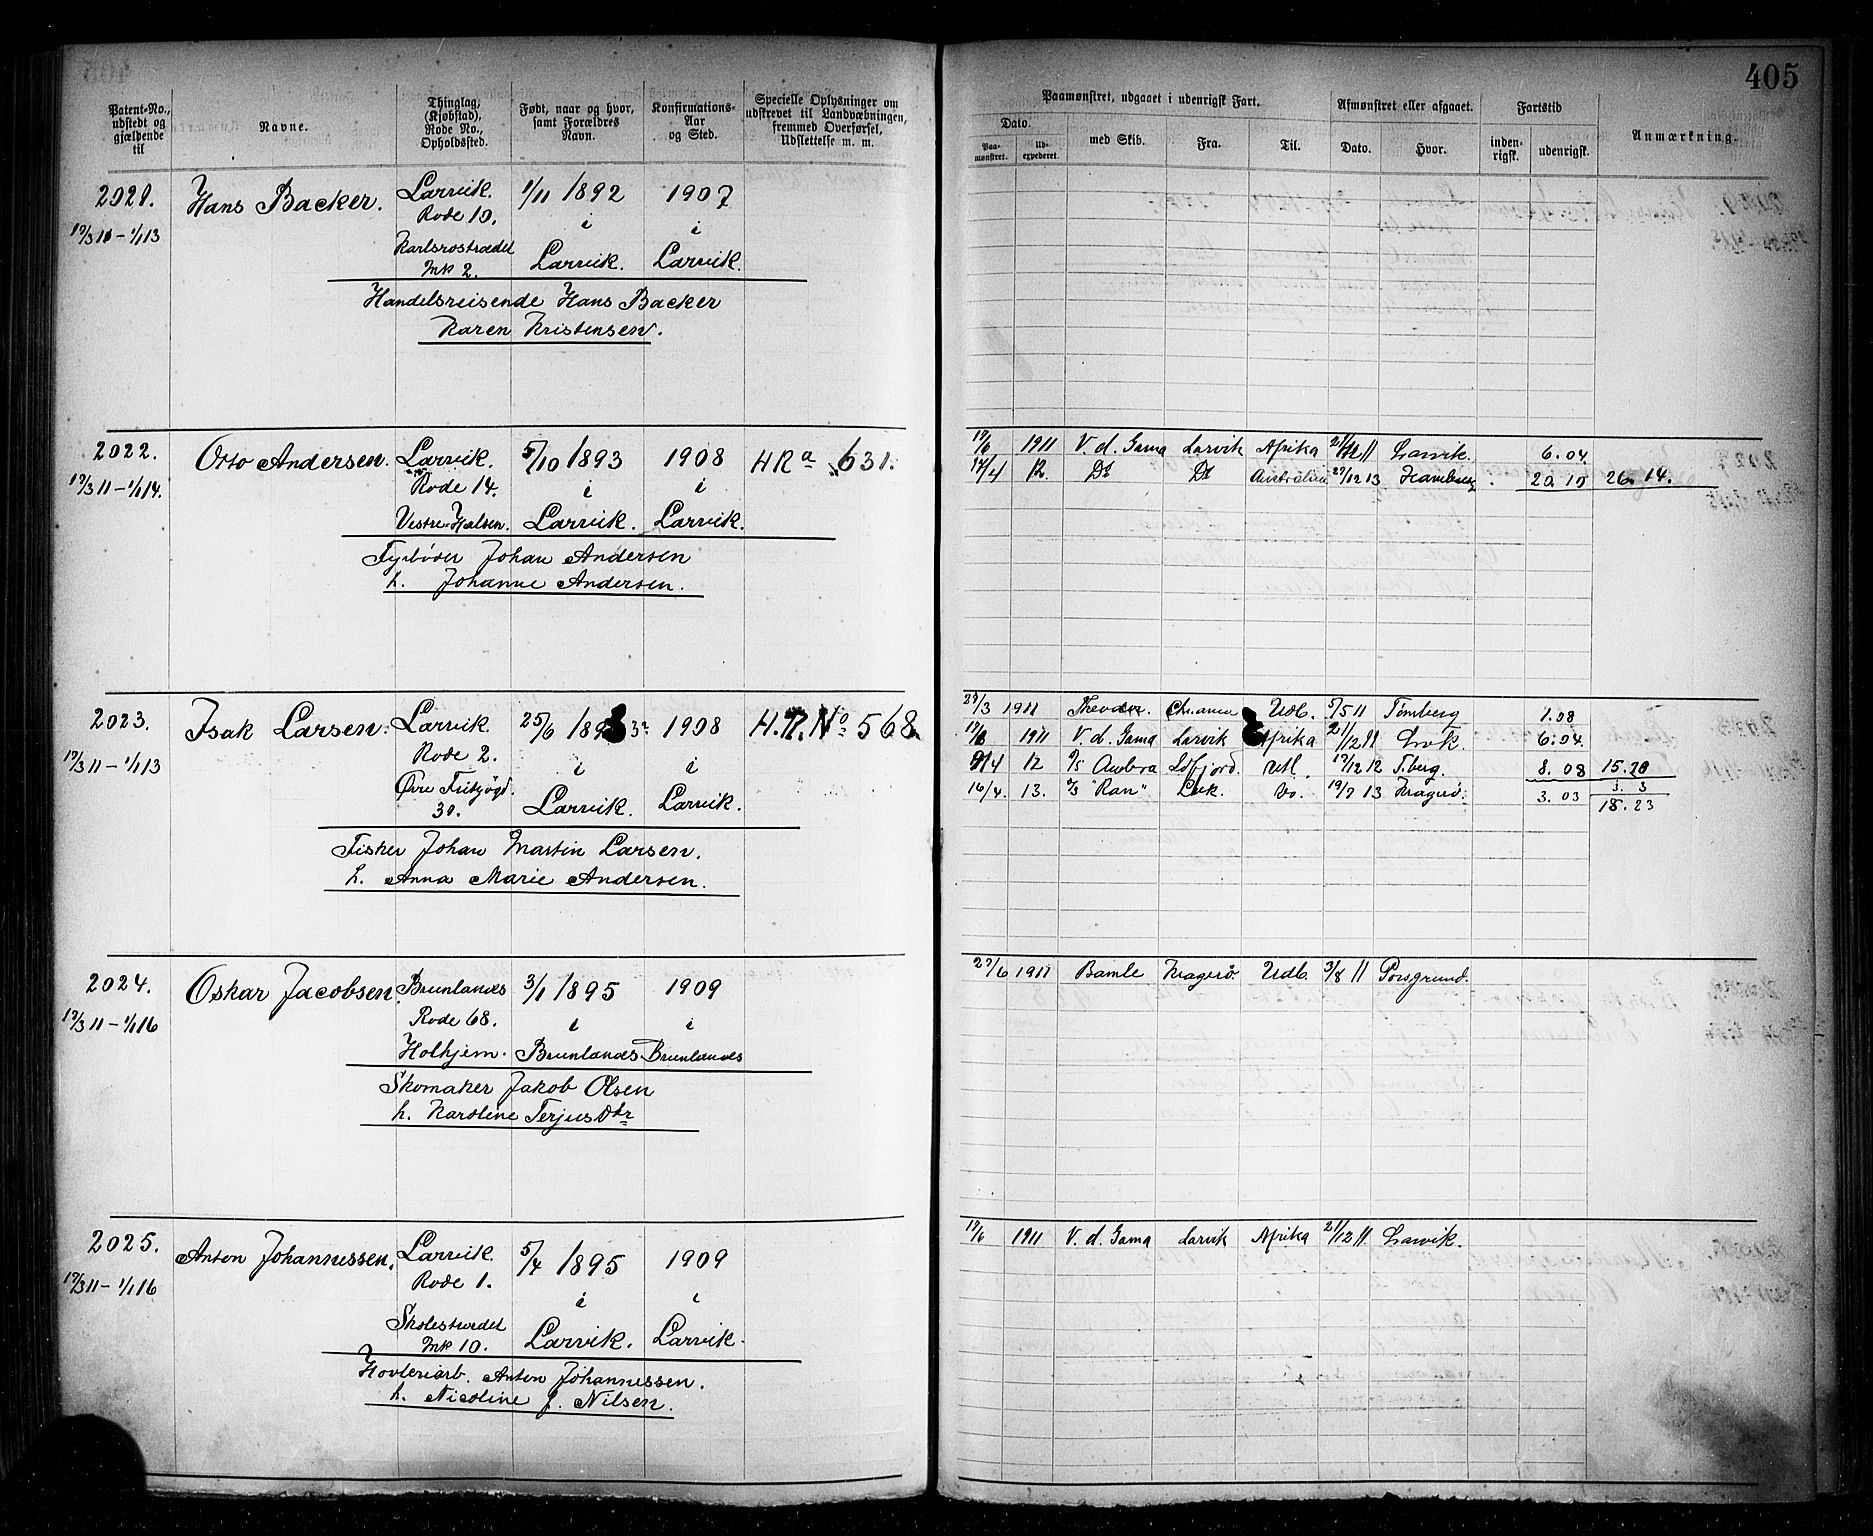 405
Patent-No., udstedt og gjældende til
Navne.
Thinglag, (Kjøbstad), Rode No., Opholdssted.
Født, naar og hvor, samt Forældres Navn.
Konfirmations-Aar og Sted.
Specielle Oplysninger om udskrevet til Landvæbningen, fremmed Overførsel, Udslettelse m. m.
Paamønstret, udgaaet i udenrigsk Fart.
Dato.
Paa-mønstret.
Ud-expederet.
med Skib.
Fra.
Til.
Afmønstret eller afgaaet.
Dato.
Hvor.
Fartstid
inden-rigsk.
udenrigsk.
Anmærkning.
2021. Hans Backer. Larvik. 1/11 1892 1907
17/3 11 - 1/1 13 Rode 10. i i
Karlsrostrædet Mk 2. Larvik. Larvik.
Handelsreisende Hans Backer
Karen Kristensen.
2022. Otto Andersen. Larvik. 5/10 1893 1908 HRa 631.
17/3 11 - 1/1 14. Rode 14. i i
Vestre Halsen. Larvik. Larvik.
Fyrbøder Johan Andersen
h. Johanne Andersen.
17/6 1911 V. d. Gama Larvik Afrika 21/12 11 Larvik. 6.04
17/4 12 Dt Dt Australien 27/12 13 Hamburg 20 10 26. 14.
2023. Isak Larsen. Larvik. 25/6 1893 1908 H.R. No 568
17/3 11 - 1/1 13 Rode 2. i i
Øvre Fritzøgd. 30. Larvik. Larvik.
Fisker Johan Martin Larsen.
h. Anna Marie Andersen.
27/3 1911 Chr.ania Udl. 5/5 11 Tønsberg 1.08
17/6 1911 V. d. Gama Larvik Afrika 21/12 11 Lvk. 6.04.
9/4 12 S/S Ambra Utl. 17/12 12 T.berg. 8. 08 15.20
16/4. 13. S/S "Ran" Lvk. Do. 19/7 13 Kragerø. 3. 03 3. 3
18. 23
2024. Oskar Jacobsen. Brunlanes 3/1 1895 1909
17/3 11 - 1/1 16 Rode 68. i i
Holhjem. Brunlanes Brunlanes
Skomaker Jakob Olsen
h. Karoline Terjusdtr
27/6 1911 Bamle Kragerø. Udl. 3/8 11 Porsgrund.
2025. Anton Johannessen. Larvik. 5/4 1895 1909
17/3 11 - 1/1 16 Rode 1. i i
Skolestrædet Mk 10. Larvik. Larvik.
Høvleriarb. Anton Johannessen.
h. Nicoline J. Nilsen.
17/6 1911 V. d. Gama Larvik Afrika 21/12 11. Larvik.